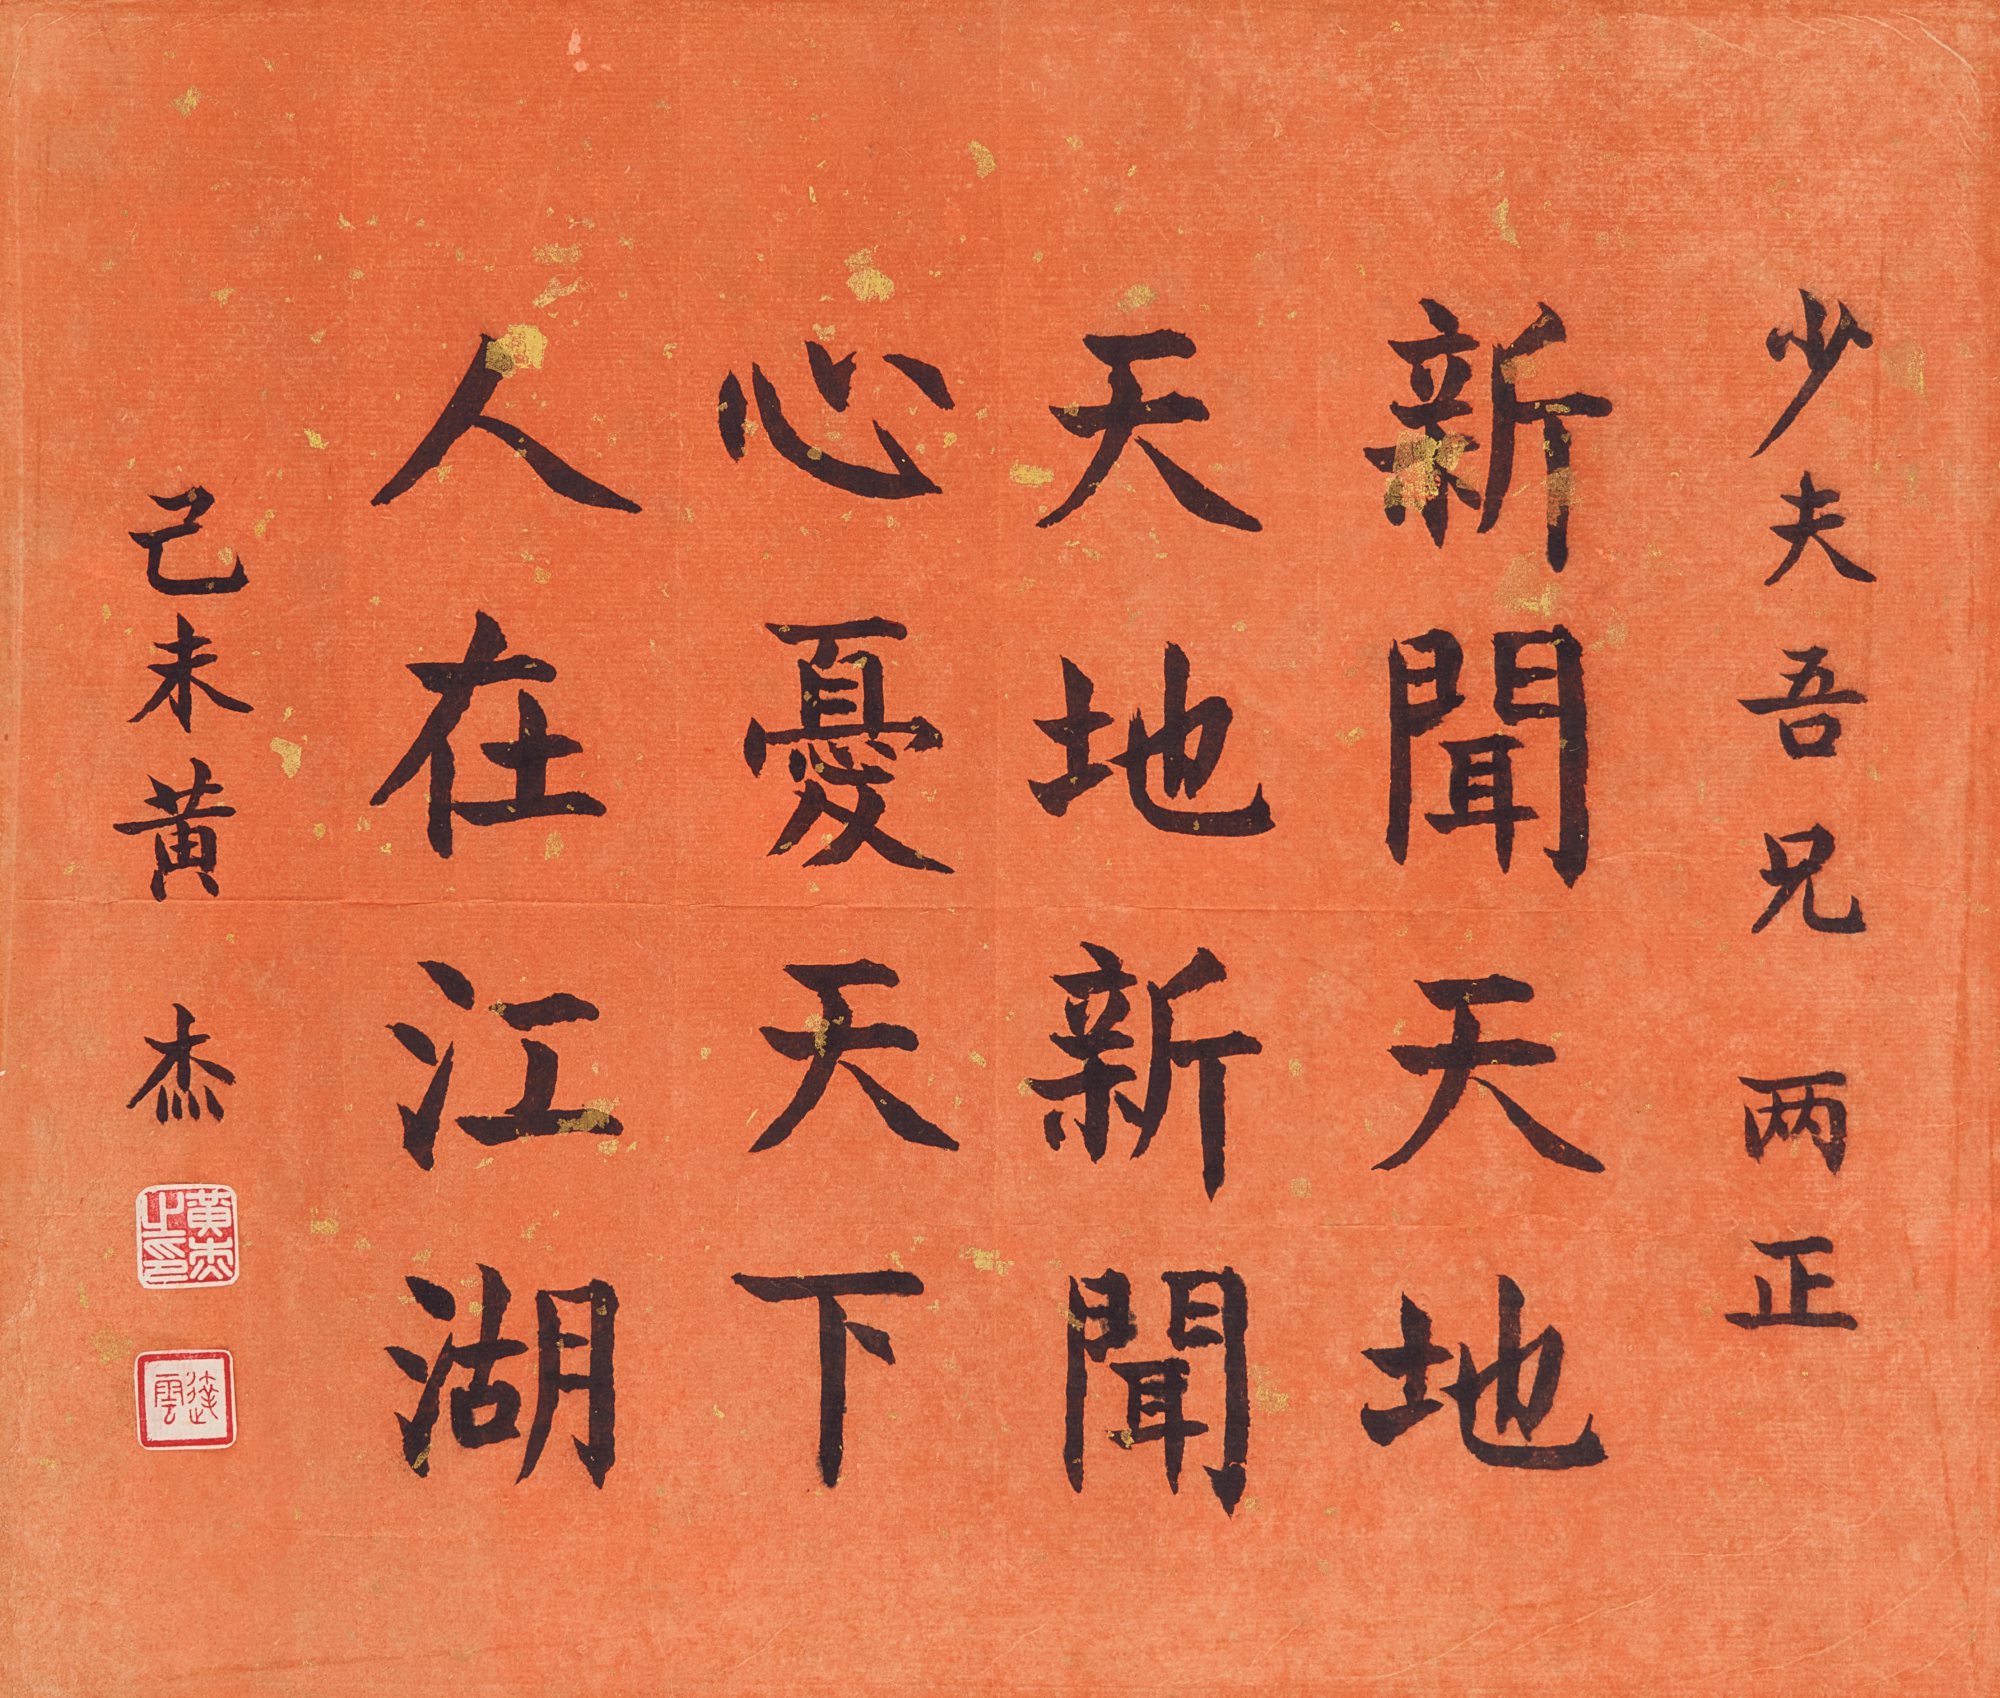 少夫吾兄 两正
新聞天地
天地新聞
心憂天下
人在江湖
己未黄 杰
黄杰之印
達雲